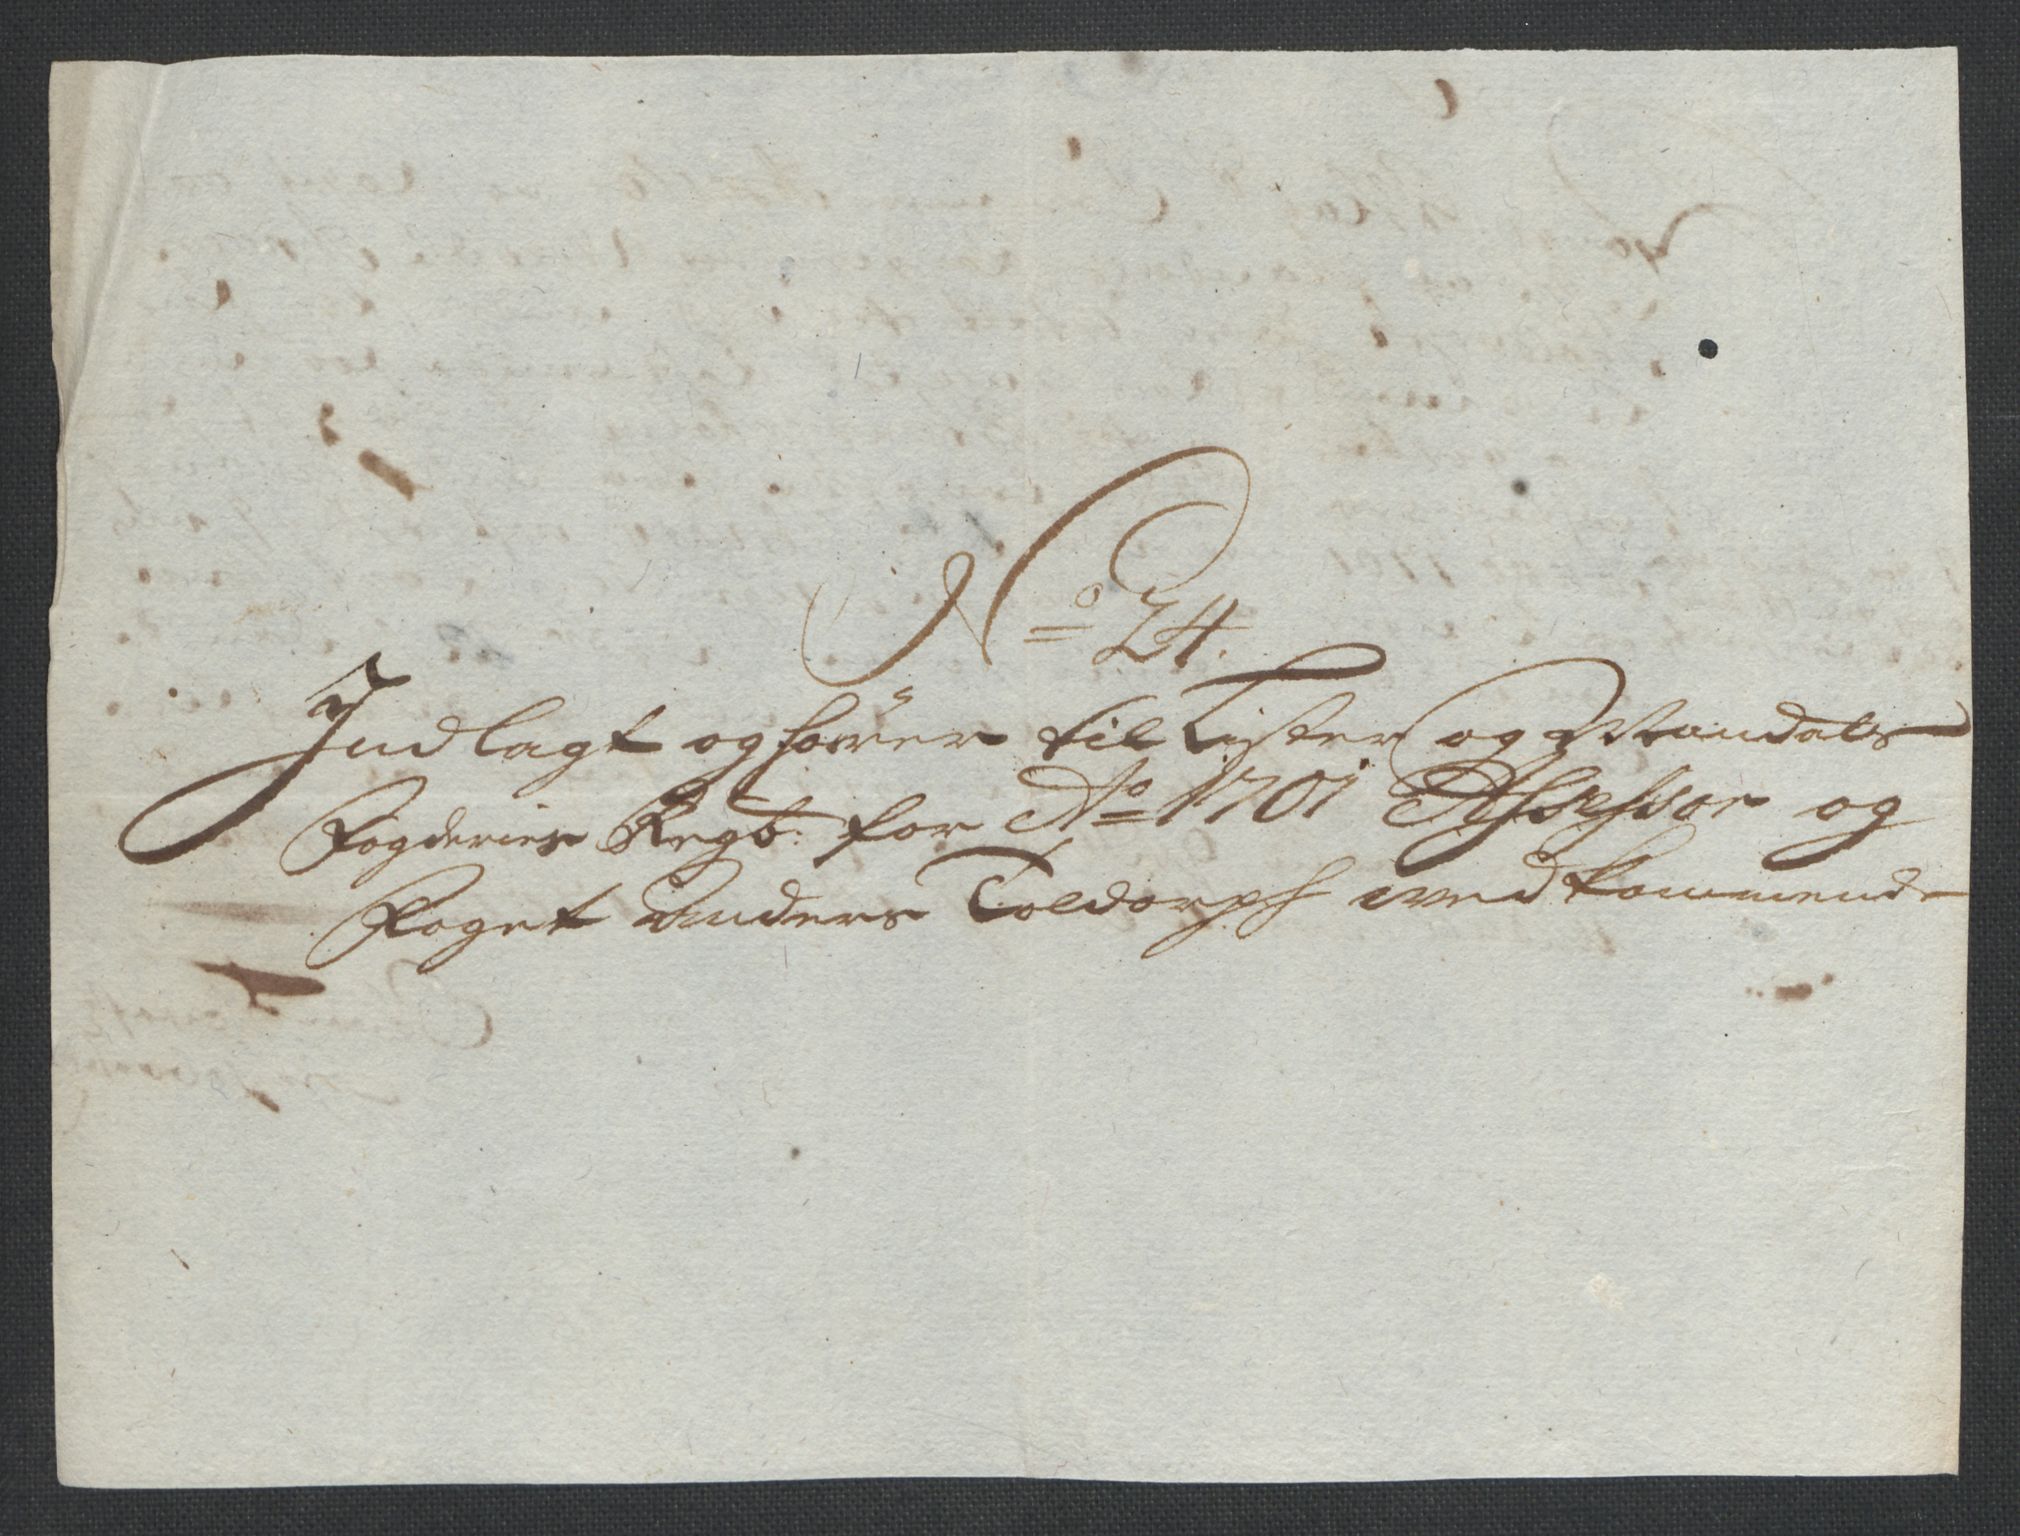 No 24.
Indlagt og hörer til Lister og Mandals
Fogderies Regb: for Ao 1701 Assessor og
Foget Anders Toldorph vedkommende